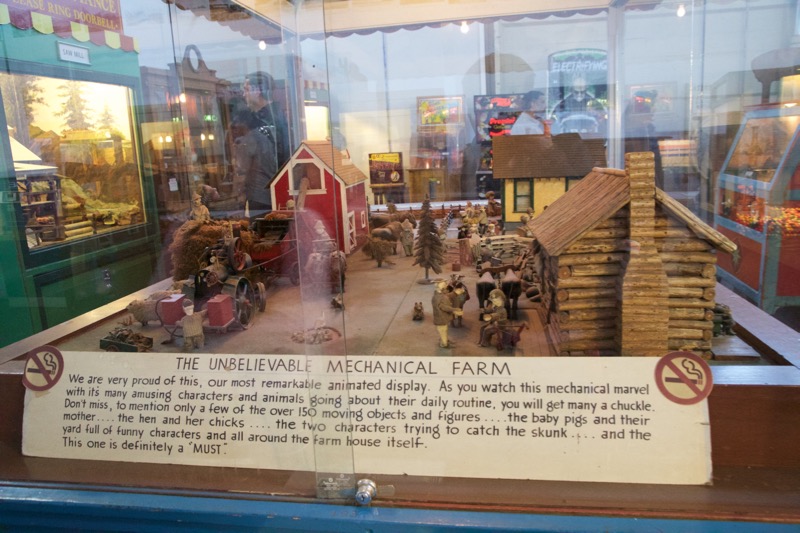 ENTRANCE
PLEASE RING DOORBELL
SAW MILL
THE UNBELIEVABLE MECHANICAL FARM
We are very proud of this, our most remarkable animated display. As you watch this mechanical marvel
with it's many amusing characters and animals going about their daily routine, you will get many a chuckle.
Don't miss, to mention only a few of the over 150 moving objects and figures ....the baby pigs and their
mother.... the hen and her chicks ..... the two characters trying to catch the skunk .... and the
yard full of funny characters and all around the farm house itself.
This one is definitely a "MUST".